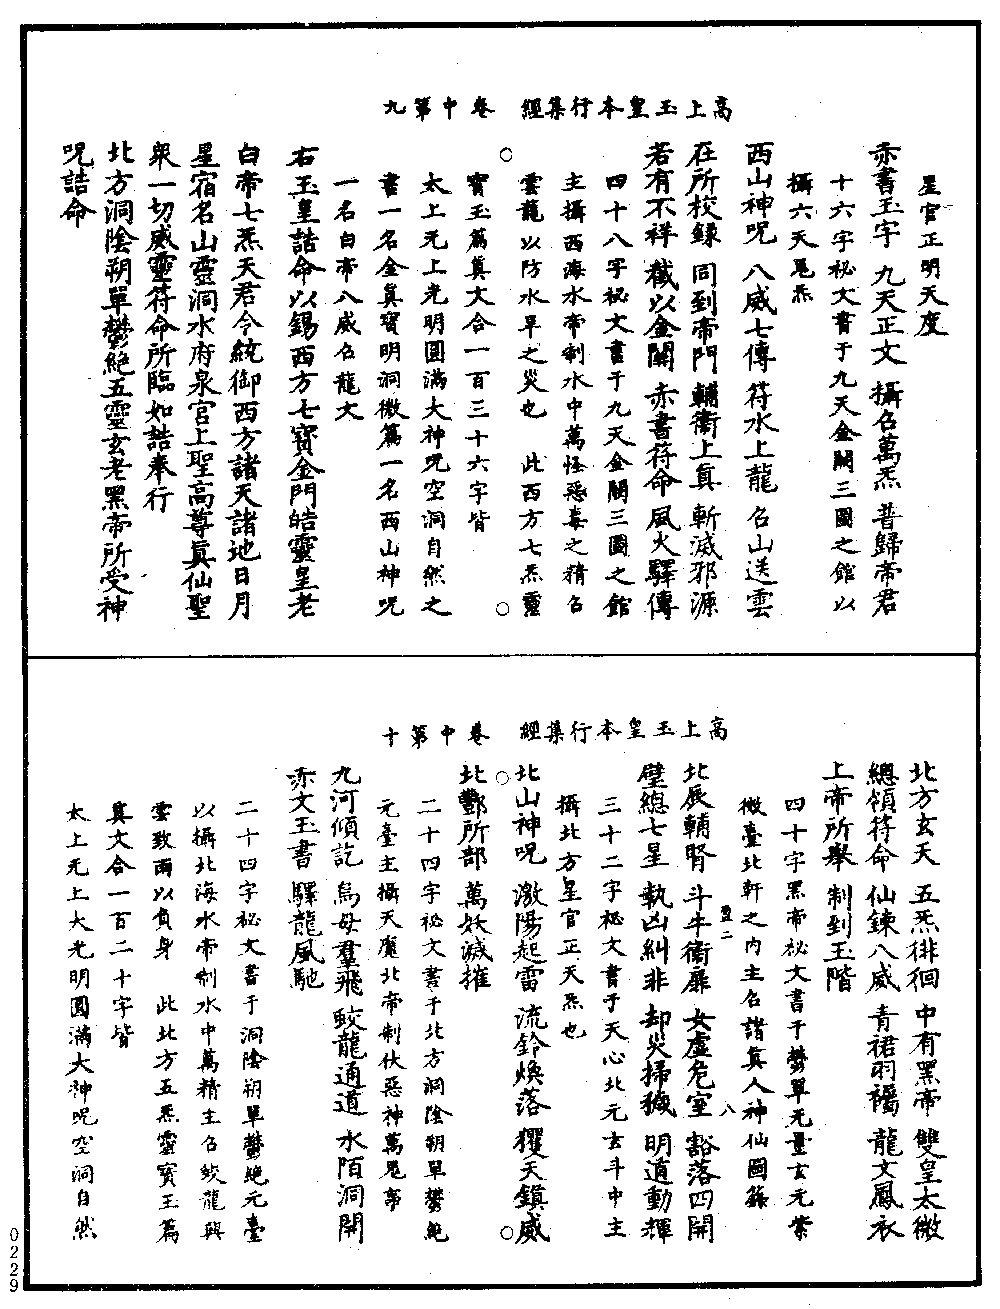 高上玉皇本行集經　卷中第九
星官正明天度
赤書玉字　九天正文　攝召萬炁　普歸帝君
十六字秘文書于九天金闕三圖之館以
攝六天鬼炁
西山神呪　八威七傳　符水上龍　召山送雲
在所校錄　同到帝門　輔衛上真　斬滅邪源
若有不祥　截以金關　赤書符命　風火驛傳
四十八字秘文書于九天金闕三圖之館
主攝西海水帝制水中萬怪惡毒之精召
雲龍以防水旱之災也　此西方七炁靈
寶玉篇真文合一百三十六字皆
太上元上光明圓滿大神呪空洞自然之
書一名金真寶明洞微篇一名西山神呪
一名白帝八威召龍文
右玉皇誥命以錫西方七寶金門皓靈皇老
白帝七炁天君令統御西方諸天諸地日月
星宿名山靈洞水府泉宮上聖高尊真仙聖
衆一切威靈符命所臨如誥奉行
北方洞陰朔單鬱絕五靈玄老黑帝所受神
呪誥命
高上玉皇本行集經　卷中第十
北方玄天　五炁徘徊　中有黑帝　雙皇太微
總領符命　仙鍊八威　青裙羽襡　龍文鳳衣
上帝所舉　制到玉階
四十字黑帝秘文書于鬱單无量玄元紫
微臺北軒之內主召諸真人神仙圖籙
北辰輔腎　斗牛衛扉　女虛危室　豁落四開
壁總七星　執凶糾非　却災掃穢　明道動輝
三十二字秘文書于天心北元玄斗中主
攝北方星官正天炁也
北山神呪　激陽起雷　流鈴煥落　玃天鎮威
北酆所部　萬妖滅摧
二十四字秘文書于北方洞陰朔單鬱絕
元臺主攝天魔北帝制伏惡神萬鬼事
九河傾訖　鳥母群飛　鮫龍通道　水陌洞開
赤文玉書　驛龍風馳
二十四字秘文書于洞陰朔單鬱絕元臺
以攝北海水帝制水中萬精主召鮫龍興
雲致雨以負身　此北方五炁靈寶玉篇
真文合一百二十字皆
太上元上大光明圓滿大神呪空洞自然
八
0229